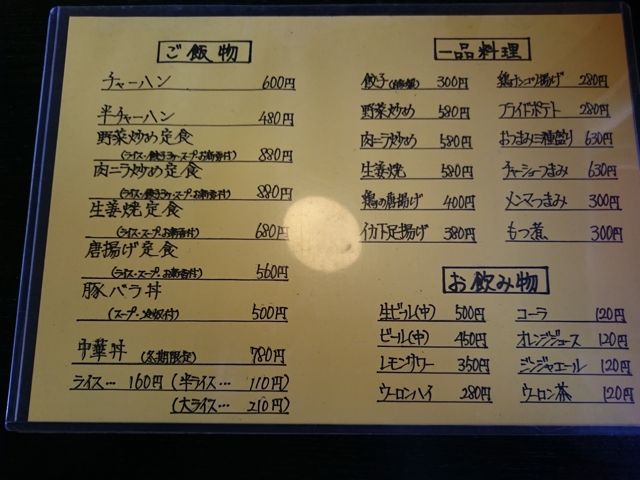 ご飯物
チャーハン 600円
半チャーハン 480円
野菜炒め定食
(ライス・餃子3ヶ・スープ・お新香付) 880円
肉ニラ炒め定食
(ライス・餃子3ヶ・スープ・お新香付) 880円
生姜焼定食
(ライス・スープ・お新香付) 680円
唐揚げ定食
(ライス・スープ・お新香付) 560円
豚バラ丼
(スープ・付) 500円
中華丼 (冬期限定) 780円
ライス… 160円 (半ライス… 110円)
(大ライス… 210円)
一品料理
餃子 300円
野菜炒め 580円
肉ニラ炒め 580円
生姜焼 580円
鶏の唐揚げ 400円
イカ下足揚げ 380円
鶏ナンコツ揚げ 280円
フライドポテト 280円
おつまみ三種盛り 630円
チャーシューつまみ 630円
メンマつまみ 300円
もつ煮 300円
お飲み物
生ビール(中) 500円
ビール(中) 450円
レモンサワー 350円
ウーロンハイ 280円
コーラ 120円
オレンジジュース 120円
ジンジャエール 120円
ウーロン茶 120円